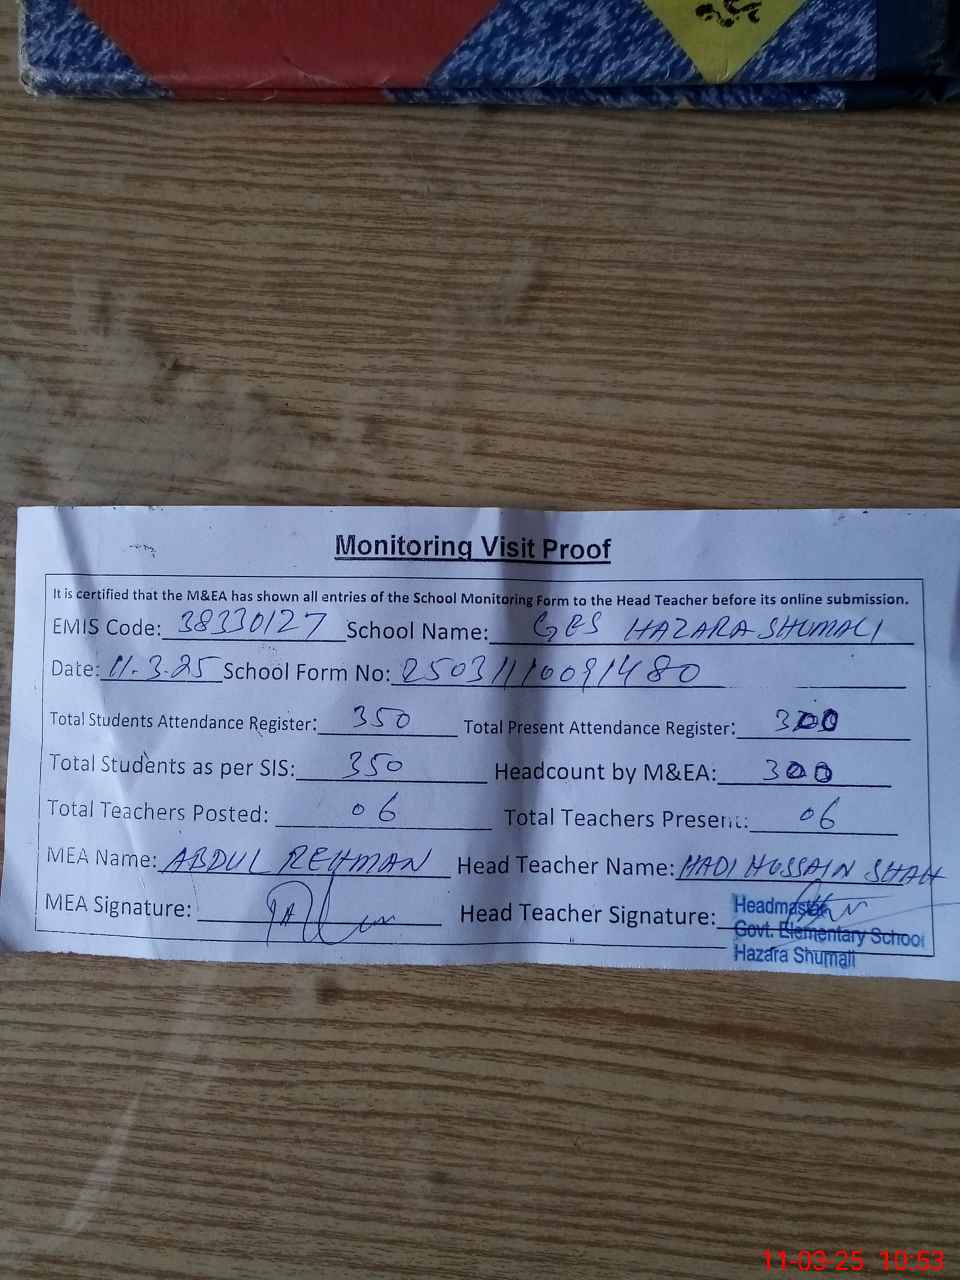 Monitoring Visit Proof
It is certified that the M&EA has shown all entries of the School Monitoring Form to the Head Teacher before its online submission.
EMIS Code: 38330127 School Name: GES HAZARA SHUMALI
Date: 11-3-25 School Form No: 25031110091480
Total Students Attendance Register: 350 Total Present Attendance Register: 300
Total Students as per SIS: 350 Headcount by M&EA: 300
Total Teachers Posted: 06 Total Teachers Present: 06
MEA Name: ABDUL REHMAN Head Teacher Name: HADI HUSSAIN SHAH
MEA Signature: Head Teacher Signature:
Headmaster
Govt. Elementary School
Hazara Shumali
11-03-25 10:53